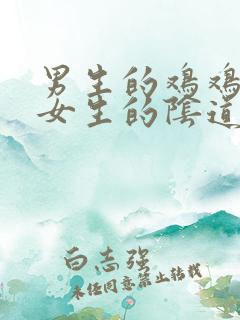 男生的鸡鸡
女生的陰道
白志强
未经同意禁止转载